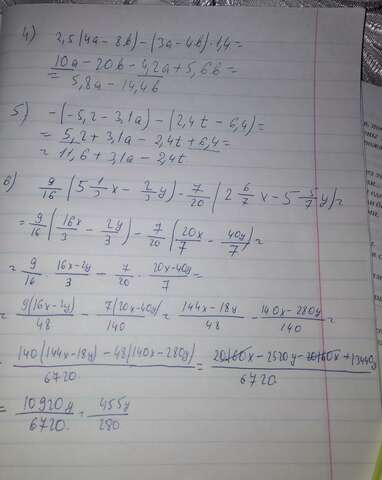 4) 2,5(4a - 8b) - (3a - 4b)·1,4 =
= 10a - 20b - 4,2a + 5,6b =
= 5,8a - 14,4b
5) -(-5,2 - 3,1a) - (2,4t - 6,4) =
= 5,2 + 3,1a - 2,4t + 6,4 =
= 11,6 + 3,1a - 2,4t
6) 9/16 (5 1/3 x - 2/3 y) - 7/20 (2 6/7 x - 5 5/7 y) =
= 9/16 (16x/3 - 2y/3) - 7/20 (20x/7 - 40y/7) =
= 9/16 · 16x-2y/3 - 7/20 · 20x-40y/7 =
= 9(16x-2y)/48 - 7(20x-40y)/140 = 144x-18y/48 - 140x-280y/140 =
= 140(144x-18y) - 48(140x-280y)/6720 = 20160x - 2520y - 20160x + 13440y/6720
= 10920y/6720 = 455y/280